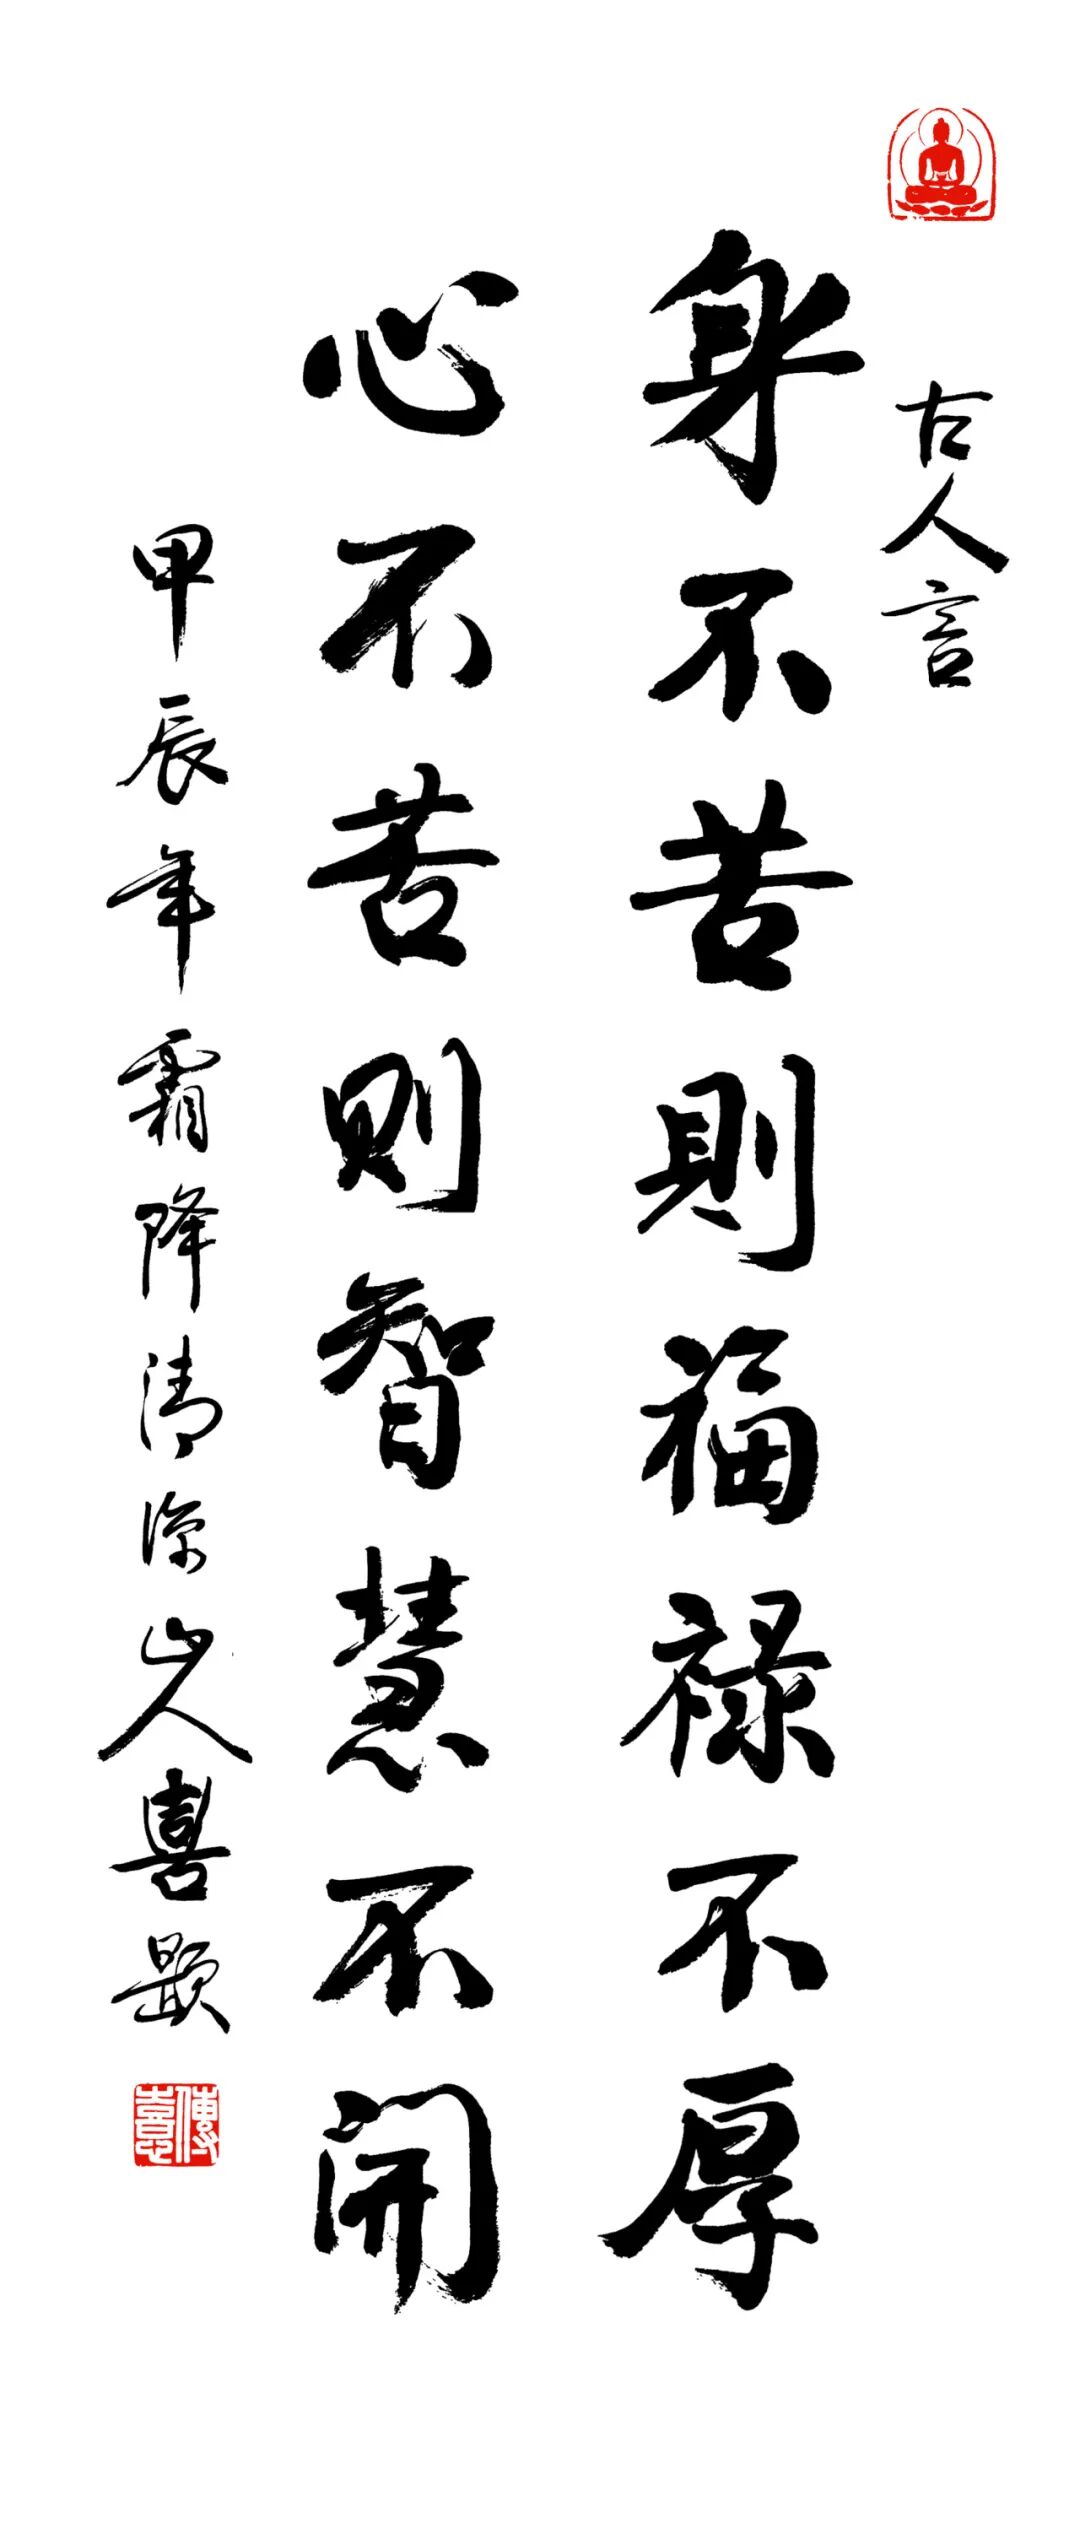 古人言
身不苦則福禄不厚
心不苦則智慧不開
甲辰年霜降清凉山人喜題
傳喜